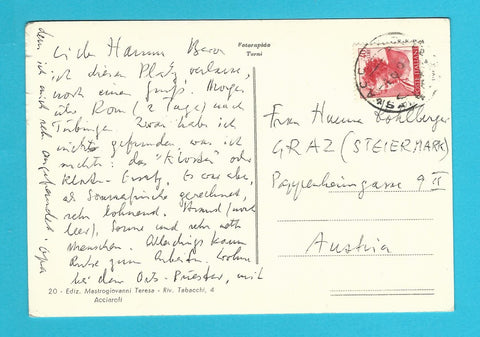 Liebe Hanna Bevor
ich diesen Platz verlasse,
noch einen Gruß. Morgen
über Rom (2 Tage) nach
Tübingen. Zwar habe ich
nichts gefunden, was ich
suchte: das "Kloster" oder
Kloster-Ersatz. Es war aber,
als Sommerfrische gerechnet,
sehr lohnend. Strand (noch
leer), Sonne und sehr nette
Menschen. Allerdings kaum
Ruhe zum Arbeiten. Wohne
bei dem Orts-Priester, mit
dem ich mich sehr angefreundet.
Fotorapido
Terni
Frau Hanna
GRAZ (STEIERMARK)
Pappenheimgasse 9 II
Austria
20 - Ediz. Mastrogiovanni Teresa - Riv. Tabacchi, 4
Acciaroli